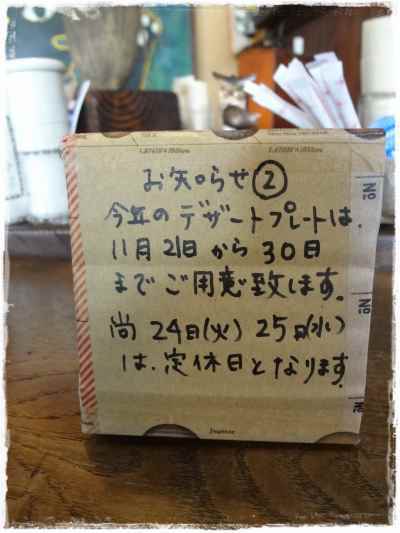 お知らせ②
今年のデザートプレートは、
11月21日から30日
までご用意致します。
尚24日(火)25日(水)
は、定休日となります。
No
No
No